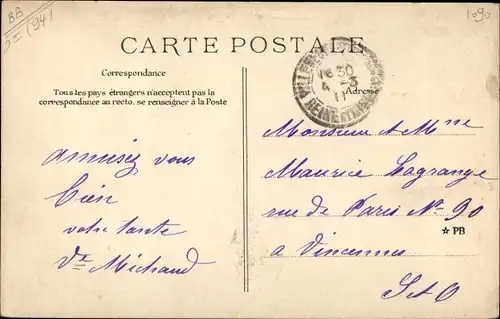 BB
(94)
1090
CARTE POSTALE
Correspondance
Tous les pays étrangers n'acceptent pas la
correspondance au recto. se renseigner à la Poste
Adresse
16 30
4 - 3
11
amusez vous
bien
votre tante
Vve Michaud
Monsieur et Mme
Maurice Lagrange
rue de Paris No 90
à Vincennes
S et O
☆ PB